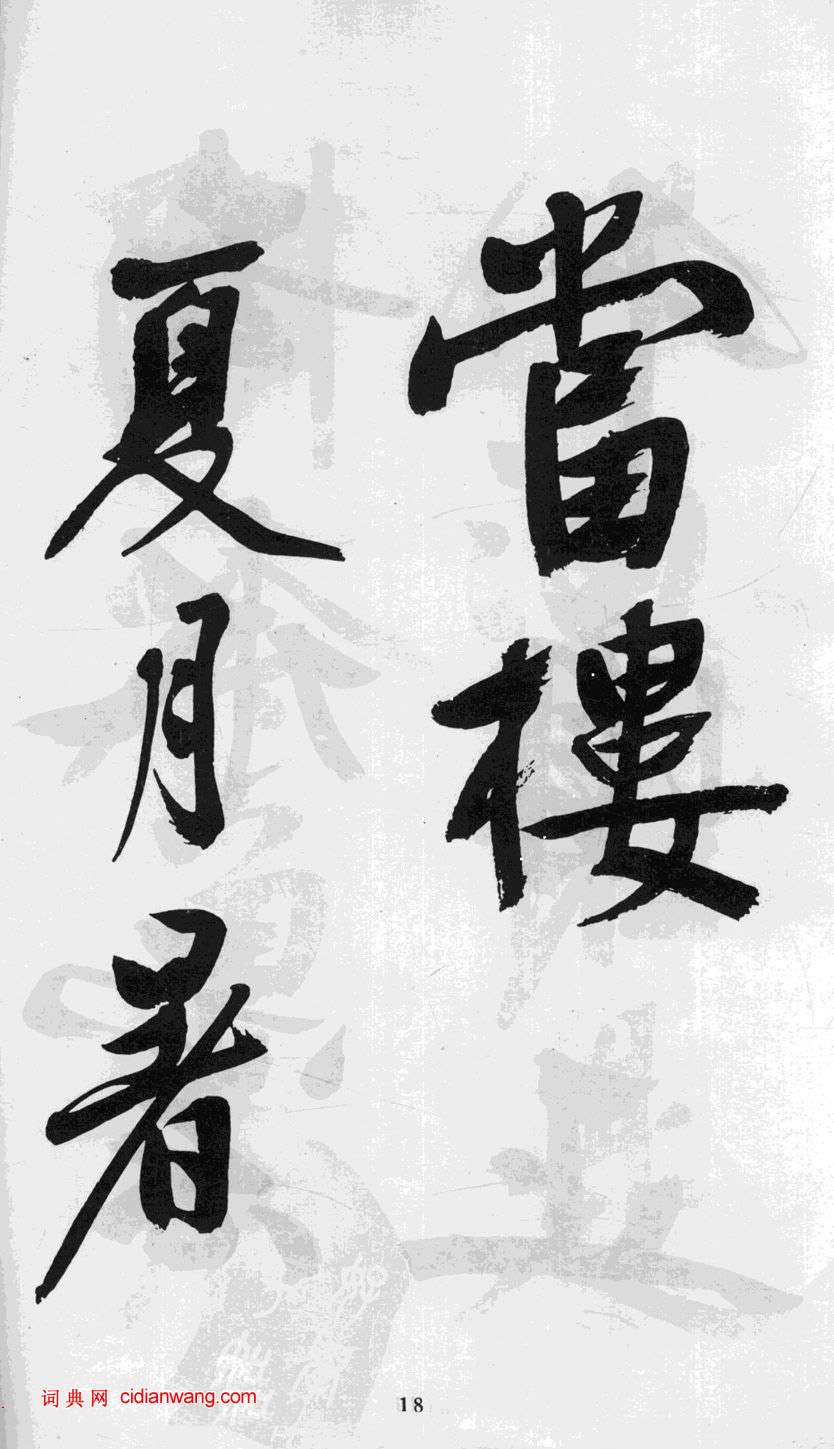 當樓
夏月暑
词典网 cidianwang.com
18